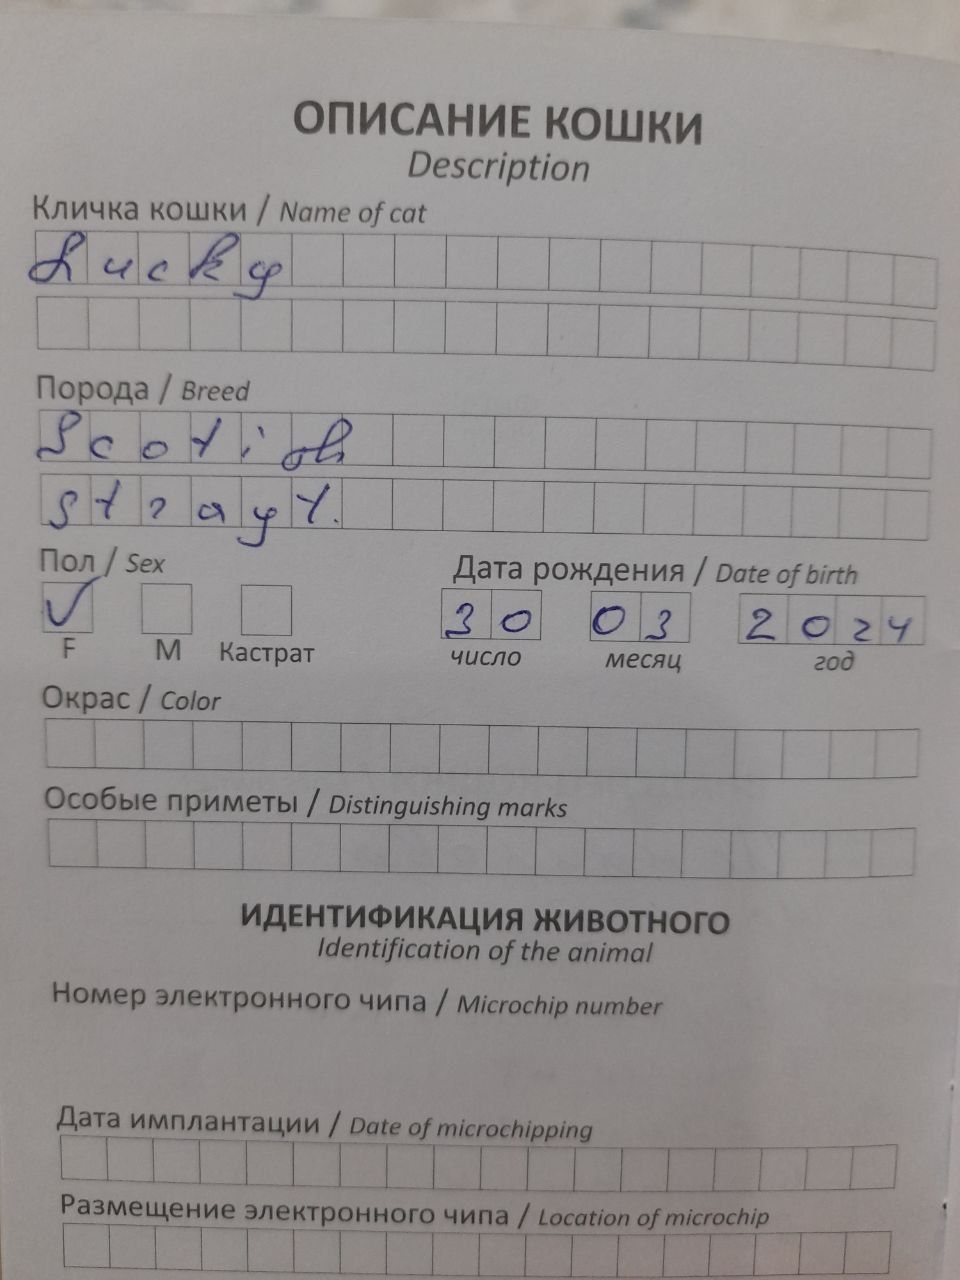 ОПИСАНИЕ КОШКИ
Description
Кличка кошки / Name of cat
Lucky
Порода / Breed
Scotish
strayt.
Пол / Sex
Дата рождения / Date of birth
F M Кастрат
30 03 2024
число месяц год
Окрас / Color
Особые приметы / Distinguishing marks
ИДЕНТИФИКАЦИЯ ЖИВОТНОГО
Identification of the animal
Номер электронного чипа / Microchip number
Дата имплантации / Date of microchipping
Размещение электронного чипа / Location of microchip